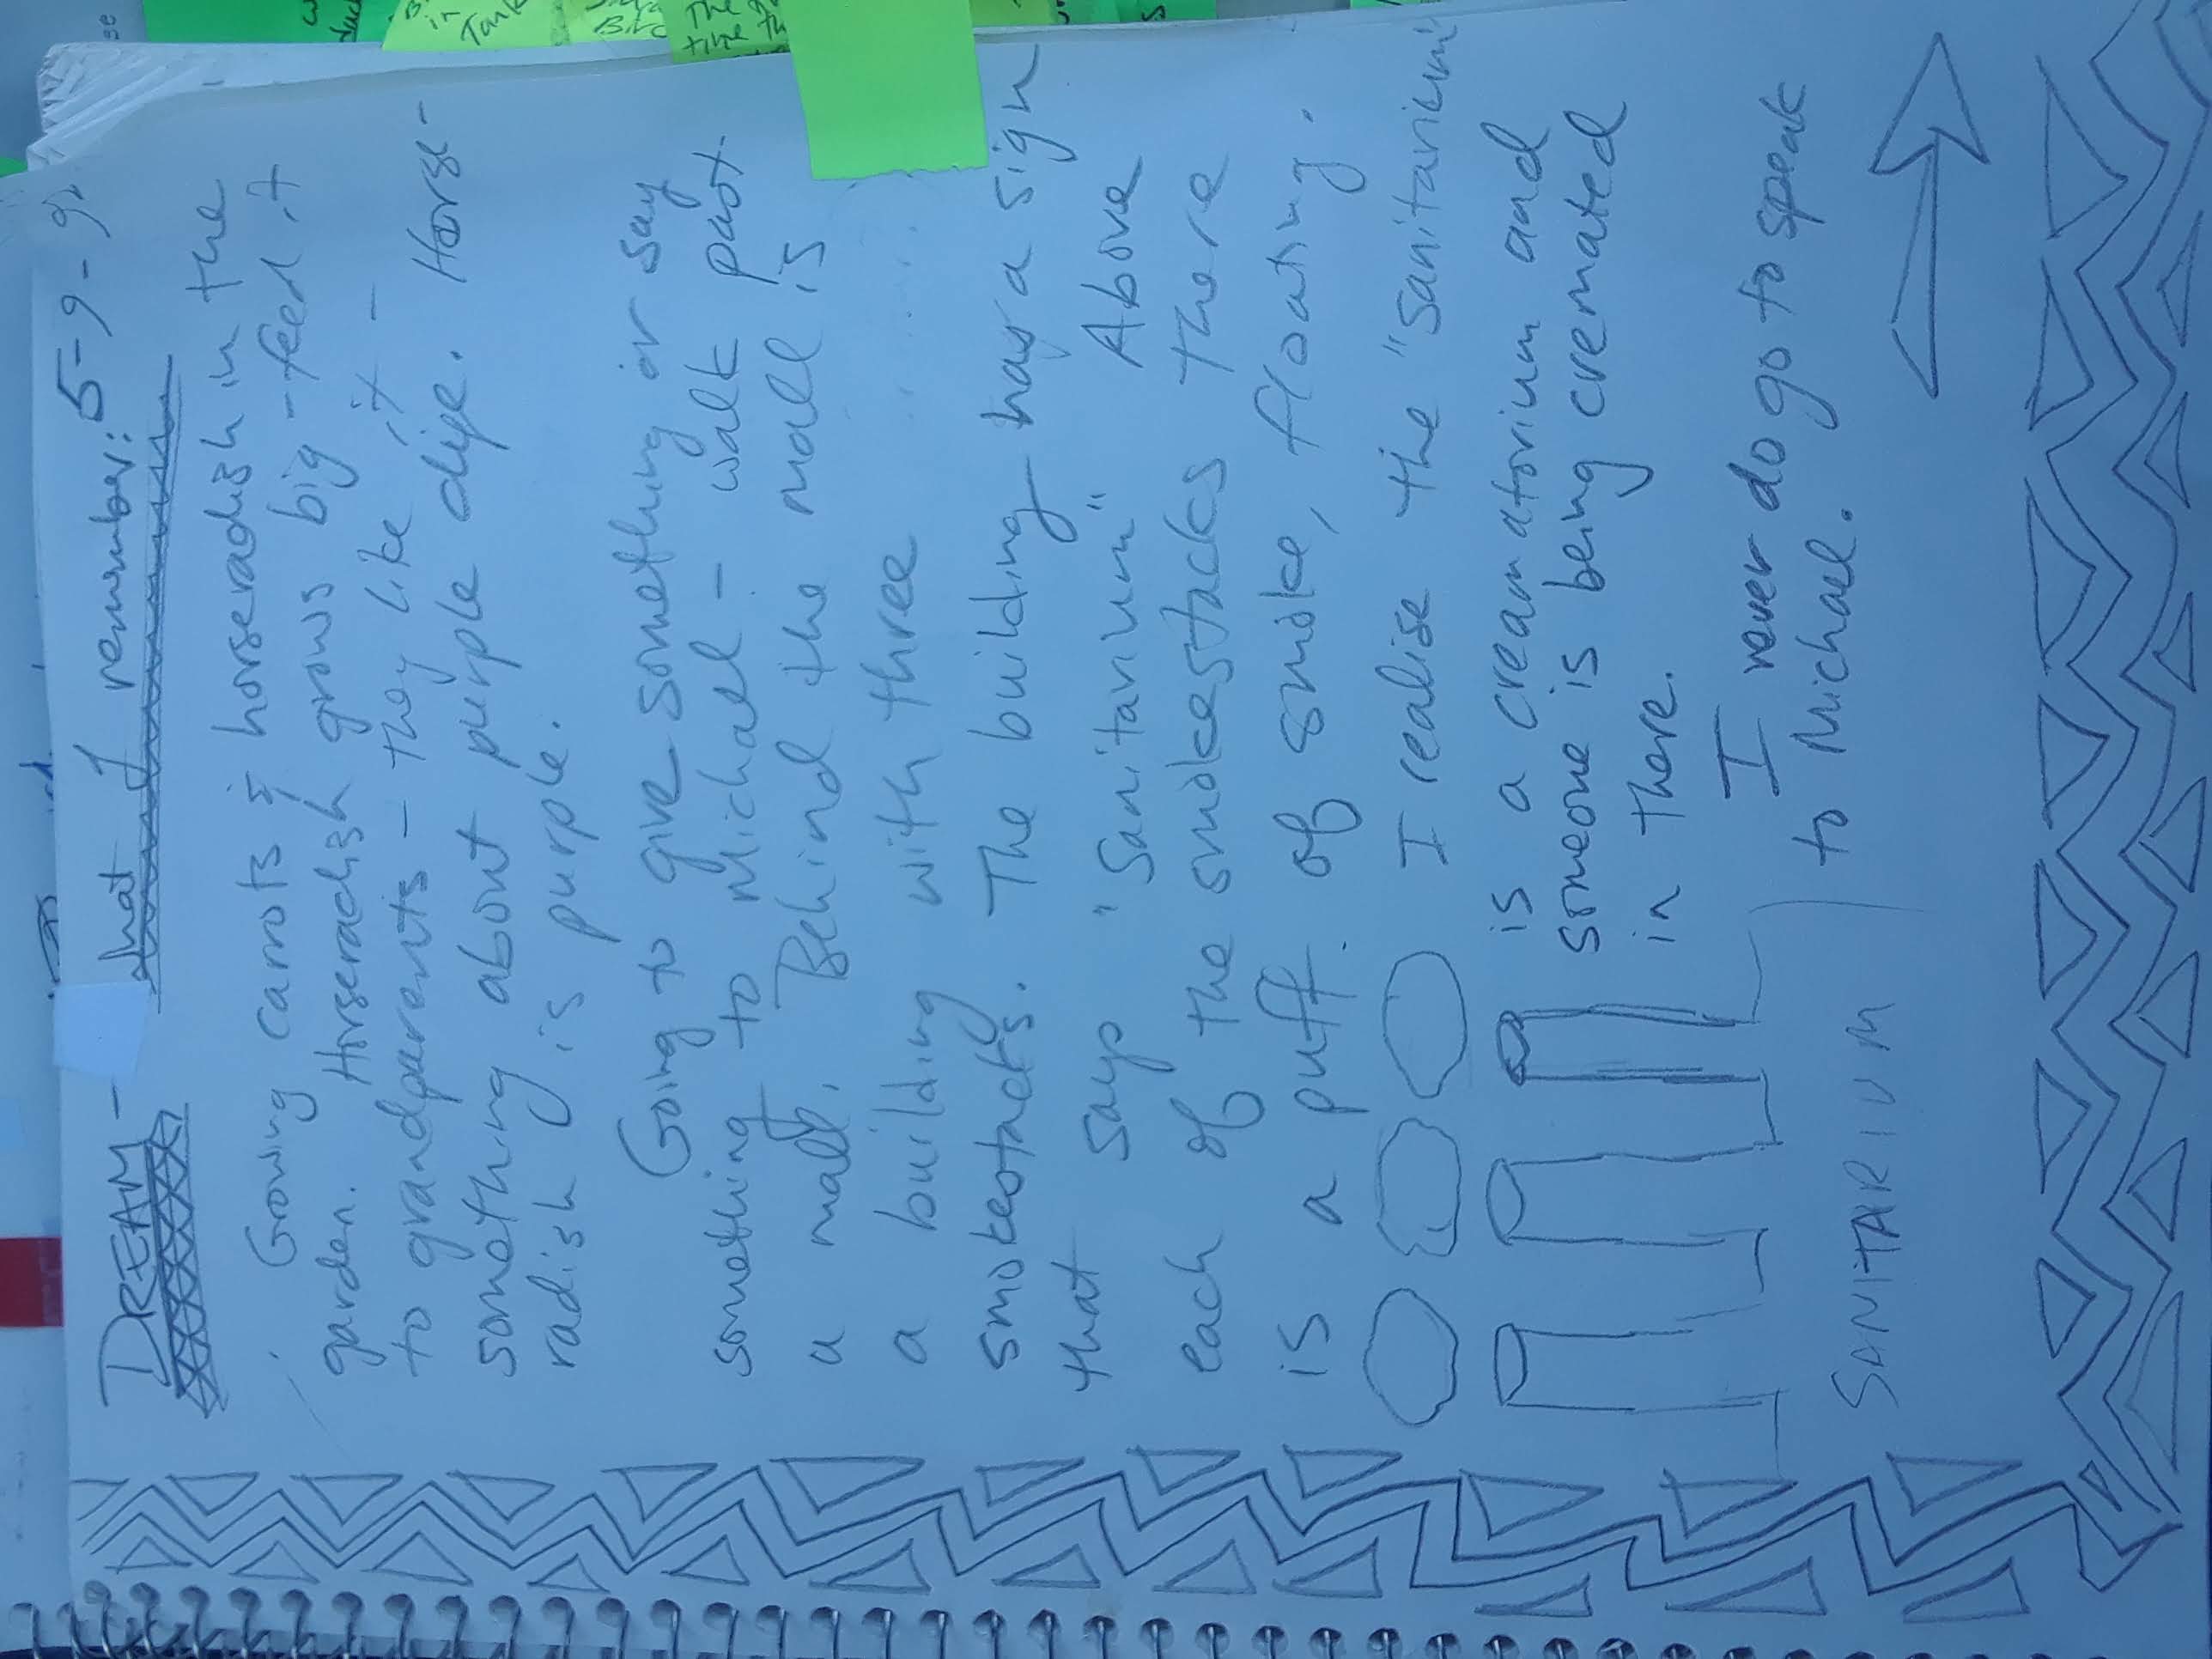 DREAM - what I remember: 5-9-9
Growing carrots & horseradish in the
garden. Horseradish grows big - feed it
to grandparents - they like it -
something about purple dye. Horse-
radish is purple.
Going to give something or say
something to Michael - walk past
a mall. Behind the mall is
a building with three
smokestacks. The building has a sign
that says "Sanitarium" Above
each of the smokestacks there
is a puff of smoke, floating.
I realise the "sanitarium"
is a creamatorium and
someone is being cremated
in there.
I never do go to speak
to Michael.
SANITARIUM
in
Tank
The
time